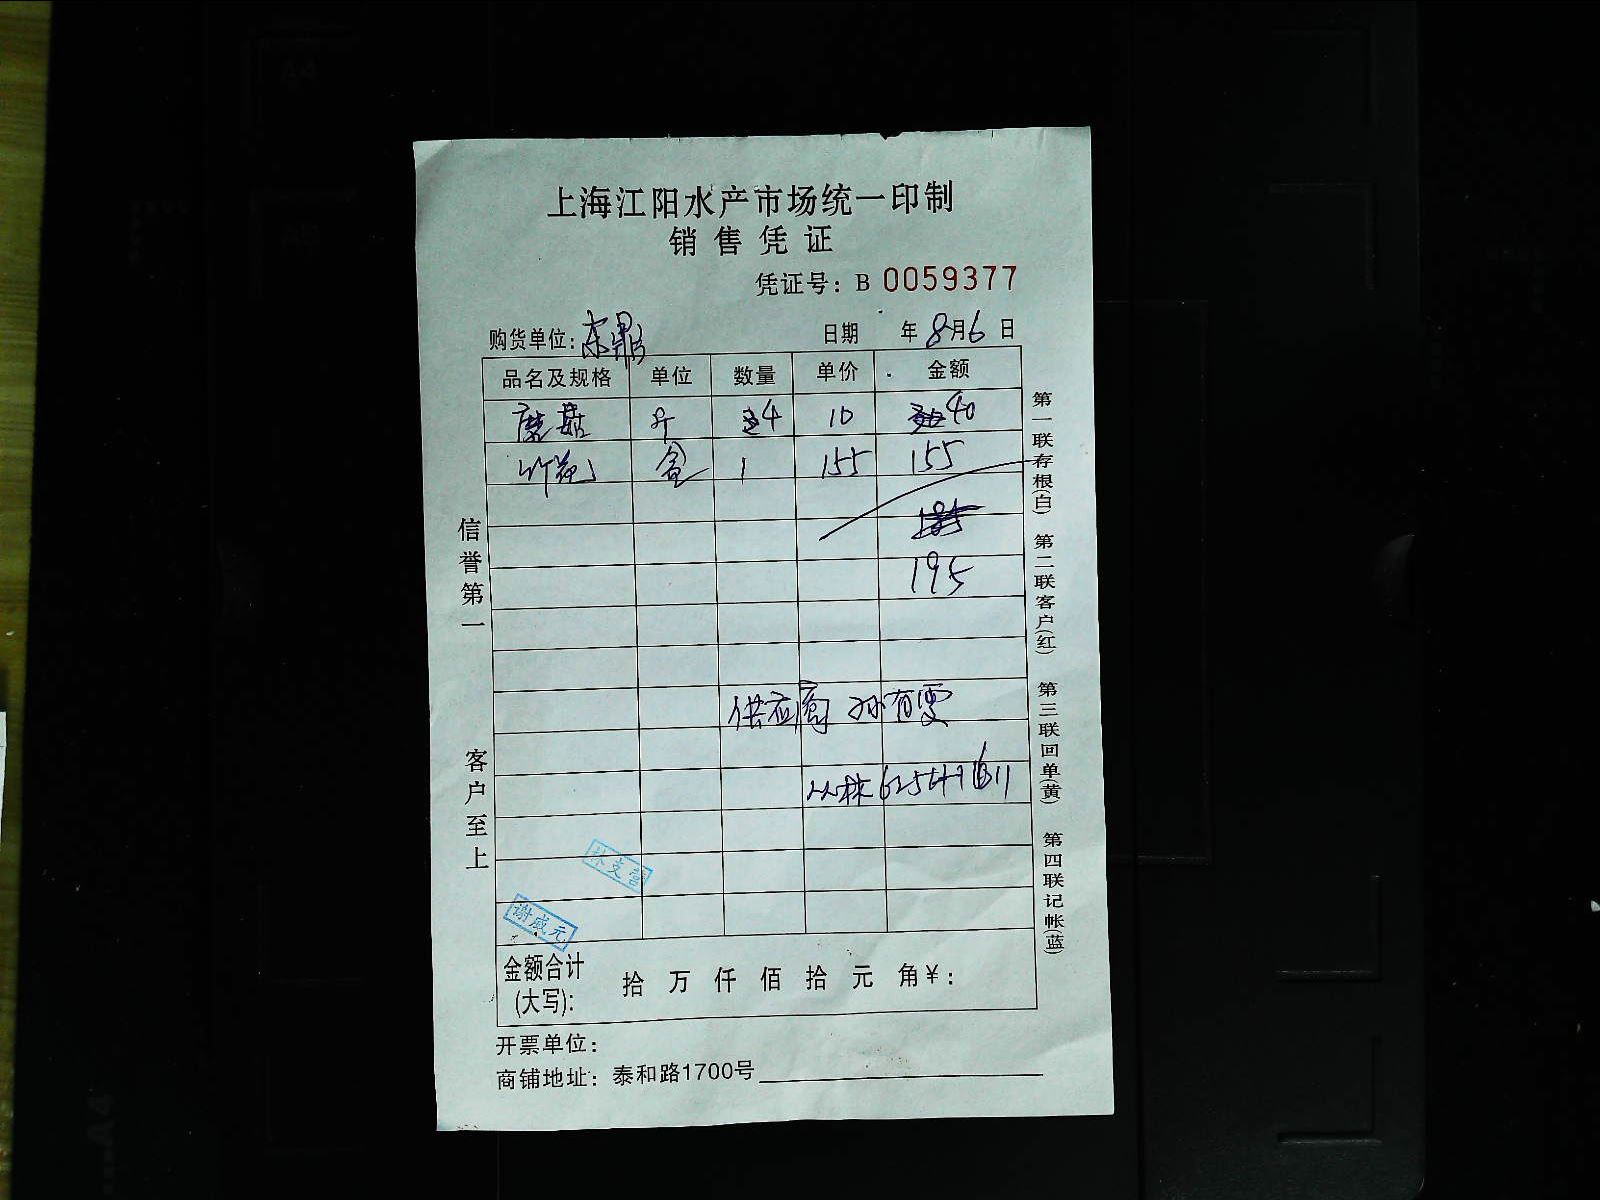 上海江阳水产市场统一印制
销售凭证
凭证号：B 0059377
购货单位：东鼎 日期 年8月6日
品名及规格 单位 数量 单价 金额
蘑菇 斤 4 10 40
竹 盒 1 155 155
195
供应商 孙有雯
金额合计(大写)： 拾 万 仟 佰 拾 元 角 ¥：
开票单位：
商铺地址：泰和路1700号
信誉第一 客户至上
第一联存根(白) 第二联客户(红) 第三联回单(黄) 第四联记帐(蓝)
谢成元